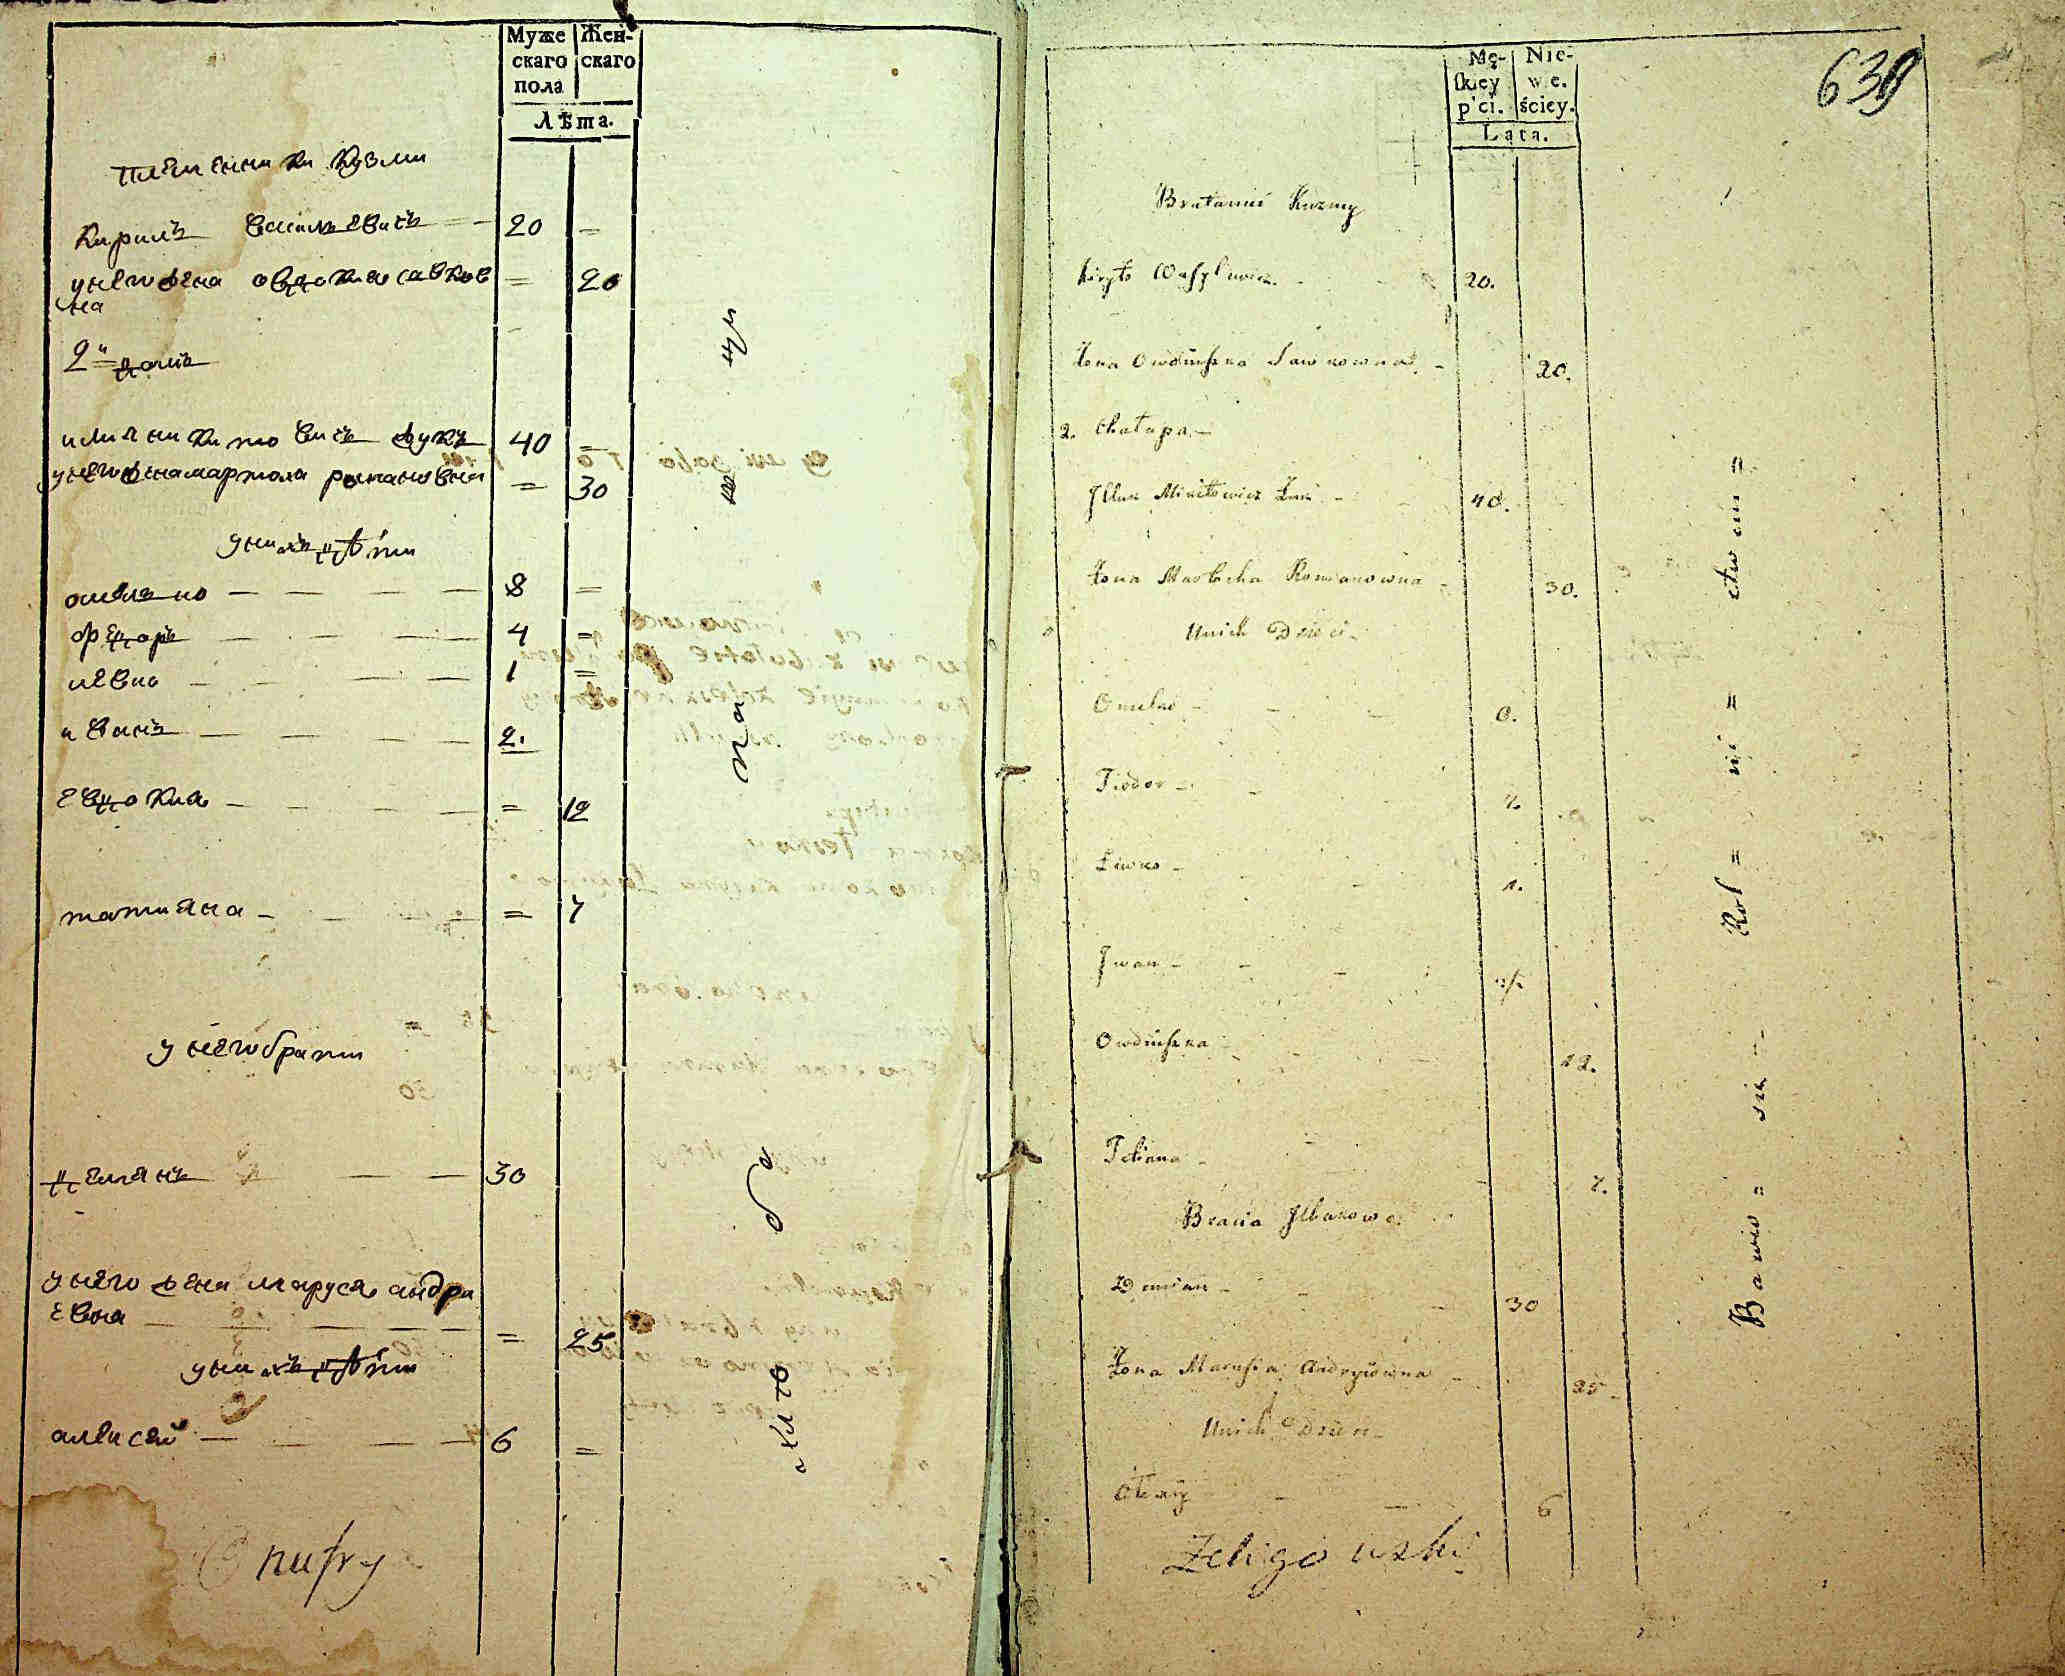 Муже
скаго
пола
Жен-
скаго
Лѣта.
племенники Кузми
Кирилъ Василевичъ 20 =
унего жена овдокия савков 20
на
2й домъ
микитовичъ жукъ 40 =
унего жена мартоха романовна = 30
унихъ дѣти
омелько — — — — 8 =
федоръ — — — — 4 =
левко — — — — 1 =
иванъ — — — — 2.
евдокия — — — — = 12
татияна — — — = 7
унего брати
демянъ — — 30
унего жена маруся андри
евна — — — — = 25
унихъ дѣти
алексей — — — 6 =
Onufry
639
Mę-
skiey
p'ci.
Nie-
we.
ściey.
Lata.
Bratanki Kuzmy
Kiryło Wasylewicz 20.
Żona Owdiuszka Sawkowna. - 20.
2. Chałupa -
Mikitowicz Żuk - 40.
Żona Martocha Romanowna - 30.
Unich Dzieci -
Omelko - - -
Fiodor -
Lewko - - 1.
Iwan - - -
Owdiuszka - 12.
Tetiana - 7.
Bracia
Demian - - - 30
Żona Marusia Andryiowna - 25 -
Unich Dzieci -
- - 6
Zeligowski
Bawio = sie - Rol = ni = ctwem =